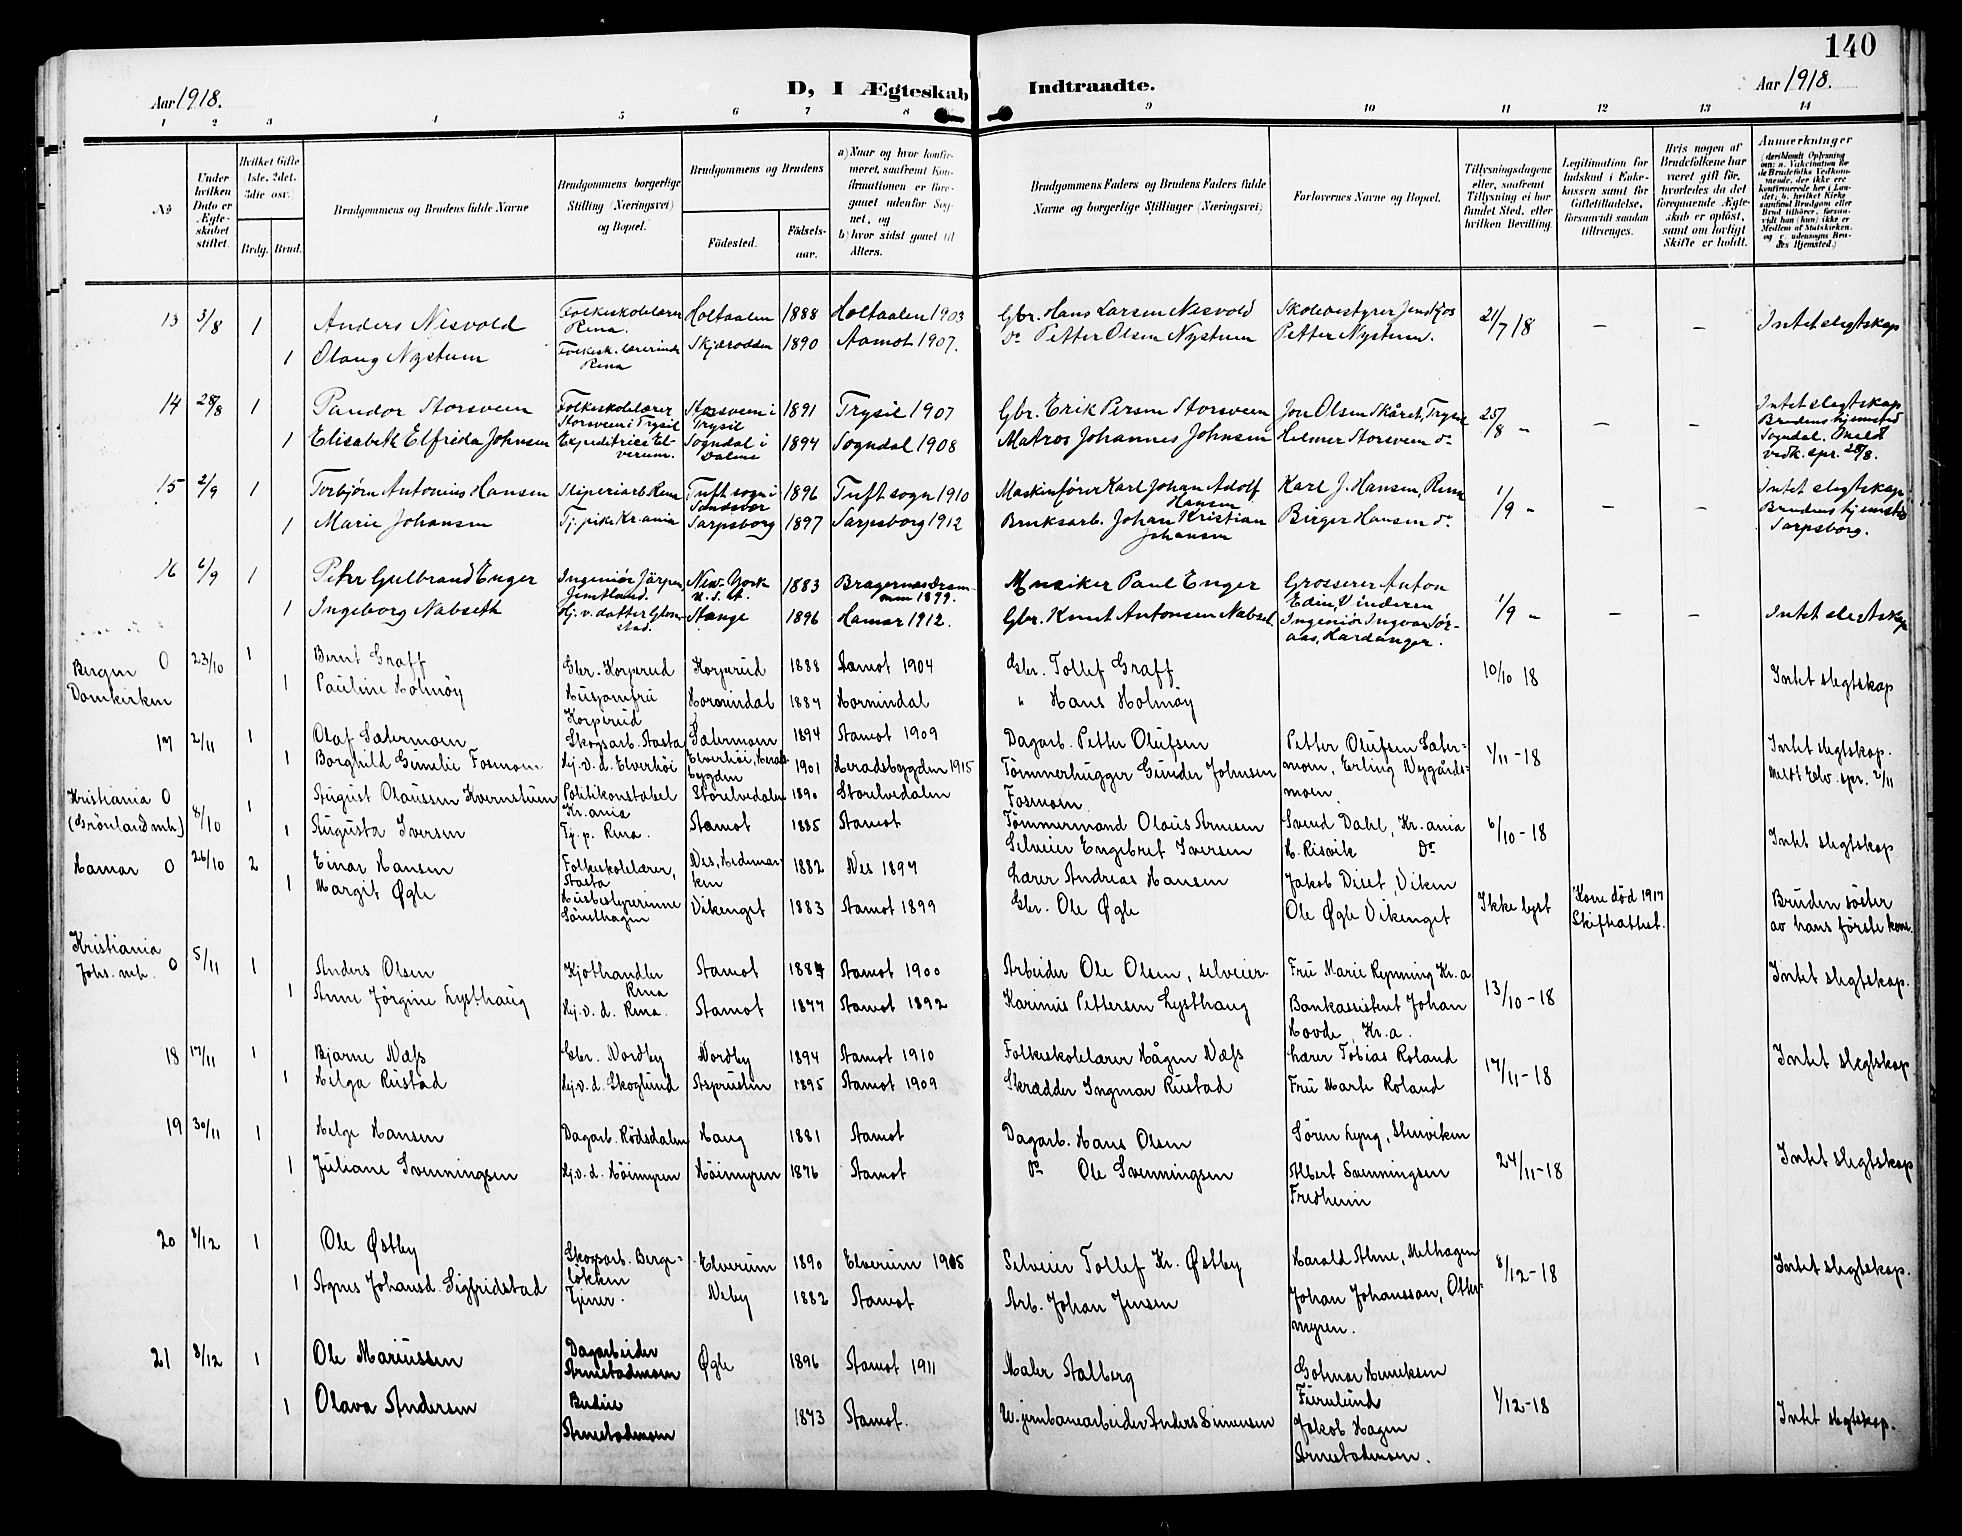 140
Aar 1918.
D, I Ægteskab Indtraadte.
Aar 1918.
1 2 3 4 5 6 7 8 9 10 11 12 13 14
No
Under hvilken Dato er Ægteskabet stiftet.
Hvilket Gifte 1ste, 2det, 3die osv.
Brdg. Brud.
Brudgommens og Brudens fulde Navne
Brudgommens borgerlige Stilling (Næringsvei) og Bopæl.
Brudgommens og Brudens
Fødested.
Fødselsaar.
a) Naar og hvor konfirmeret, saafremt Konfirmationen er foregaaet udenfor Sognet, og
b) hvor sidst gaaet til Alters.
Brudgommens Faders og Brudens Faders fulde Navne og borgerlige Stillinger (Næringsvei)
Forlovernes Navne og Bopæl.
Tillysningsdagene eller, saafremt Tillysning ei har fundet Sted, efter hvilken Bevilling.
Legitimation for Indskud i Enkekassen samt for Giftetilladelse, forsaavidt saadan tiltrænges.
Hvis nogen af Brudefolkene har været gift før, hvorledes da det foregaaende Ægteskab er opløst, samt om lovligt Skifte er holdt.
Anmærkninger
(deriblandt Oplysning om: a. Vakcination for de Brudefolks Vedkommende, der ikke ere konfirmerede her i Landet; b. hvilket Kirkesamfund Brudgom eller Brud tilhører, forsaavidt han (hun) ikke er Medlem af Statskirken, og c. udensogns Brudes Hjemsted.)
13 3/8 1 Anders Nesvold Folkeskolelærer Rena. Holtaalen 1888 Holtaalen 1903 Gbr. Hans Larsen Nesvold Skolebestyrer 21/7 18 – – Intet slegtskap
1 Olaug Nystuen Folkesk. lærerinde Rena Skjærodden 1890 Aamot 1907. Do Petter Olsen Nystuen Petter Nystuen.
14 28/8 1 Pandor Storsveen Folkeskolelærer Storsveen i Trysil Storsveen i Trysil 1891 Trysil 1907 Gbr. Erik Persen Storsveen Jon Olsen Skåret, Trysil 25/8 " – – Intet slegtskap Brudens hjemsted Sogndal. Meldt vedk. spr. 28/8.
1 Elisabeth Elfrida Johnsen Expeditrice Elverum. Sogndal i Dalene 1894 Sogndal 1908 Matros Johannes Johnsen Helmer Storsveen do
15 2/9 1 Torbjørn Antonius Hansen Sliperiarb. Rena Tuft sogn i Sandsvær 1896 Tuft sogn 1910 Maskinfører Karl Johan Adolf Hansen Karl J. Hansen, Rena 1/9 " – – Intet slegtskap. Brudens hjemsted Sarpsborg.
1 Marie Johansen Tj. pike Kr.ania Sarpsborg 1897 Sarpsborg 1912 Bruksarb. Johan Kristian Johansen Birger Hansen do
16 6/9 1 Peter Gulbrand Enger Ingeniör Järpen, Jemtland. New York U.S.A. 1883 Bragernes Drammen 1899. Musiker Paul Enger Grosserer Anton Edin, Vinderen 1/9 " – – Intet slegtskap
1 Ingeborg Nabseth Hj. v. datter Glomstad. Stange 1896 Hamar 1912. Gbr. Knut Antonsen Nabset Ingeniör Ingvar Hardanger.
Bergen Domkirken 0 23/10 1 Bernt Graff Gbr. Korperud Korperud 1888 Aamot 1904 Gbr. Tollef Graff 10/10 18 Intet slegtskap
1 Pauline Holmöy Husjomfru Korperud Hornindal 1884 Hornindal " Hans Holmöy
17 2/11 1 Olaf Sætermoen Skogsarb. Aasta Sætermoen 1894 Aamot 1909 Dagarb. Petter Olufsen Petter Olufsen Sætermoen, Erling Nygårdsmoen 1/11-18 Intet slegtskap. Meldt Elv. spr. 2/11
1 Borghild Gunelie Fosmoen Hj. v. d. Elverhöi Elverhöi, Heradsbygden 1901 Heradsbygden 1915 Tømmerhugger Gunder Johnsen Fosmoen.
Kristiania (Grönland mh.) 0 8/10 1 August Olaussen Kvernstuen Politikonstabel Kr.ania Storelvedalen 1890 Storelvedalen Tømmermand Olaus Arnesen Svend Dahl, Kr.ania 6/10-18 Intet slegtskap
1 Augusta Iversen Tj. p. Rena. Aamot 1885 Aamot Selveier Engebret Iversen H. Risvik Do
Hamar 0 26/10 2 Einar Hansen Folkeskolelærer, Aasta Nes, Hedmarken 1882 Nes 1897 Lærer Andreas Hansen Jakob Diset, Viken Ikke lyst Kone död 1917 Skifteattest. Bruden söster av hans förste kone.
1 Margit Øgle Husbestyrerinne Sönsthagen Vikenget 1883 Aamot 1899 Gbr. Ole Øgle Ole Øgle Vikenget
Kristiania Johs. mh. 0 5/11 1 Anders Olsen Kjöthandler Rena Aamot 1884 Aamot 1900 Arbeider Ole Olsen, selveier Fru Marie Rynning Kr.a 13/10-18 Intet slegtskap.
1 Anne Jörgine Lysthaug Hj. v. d. Rena. Aamot 1877 Aamot 1892 Karinus Pettersen Lysthaug Bankassistent Johan Hovde, Kr.a.
18 17/11 1 Bjarne Næss Gbr. Nordby Nordby 1894 Aamot 1910 Folkeskolelærer Hågen Næss Lærer Tobias Roland 17/11-18 Intet slegtskap
1 Helga Rustad Hj. v. d. Skoglund Aspruslen 1895 Aamot 1909 Skrædder Ingmar Rustad Fru Marte Roland
19 30/11 1 Helge Hansen Dagarb. Rödsdalen Haug 1881 Aamot Dagarb. Hans Olsen Sören Lyng, Stenviken 24/11-18 Intet slegtskap
1 Juliane Svenningsen Hj. v. d. Höimyren Höimyren 1876 Aamot Do Ole Svenningsen Albert Svenningsen Fredheim
20 8/12 1 Ole Østby Skogsarb. Bergelökken Elverum 1890 Elverum 1905 Selveier Tollef Kr. Østby Harald Alme, Melhagen 8/12-18 Intet slegtskap.
1 Agnes Johansd. Sigfridstad Tjener. Neby 1882 Aamot Arb. Johan Jensen Johan Johansson, Ottermyren.
21 8/12 1 Ole Mariussen Dagarbeider Arnestadmoen Øgle 1896 Aamot 1911 Maler Aalberg Gotmar Henriksen Furulund 1/12-18 Intet slegtskap.
1 Olava Andersen Budeie Arnestadmoen 1873 Aamot. U. jernbanearbeider Anders Simensen Jakob Hagen Arnestadmoen.